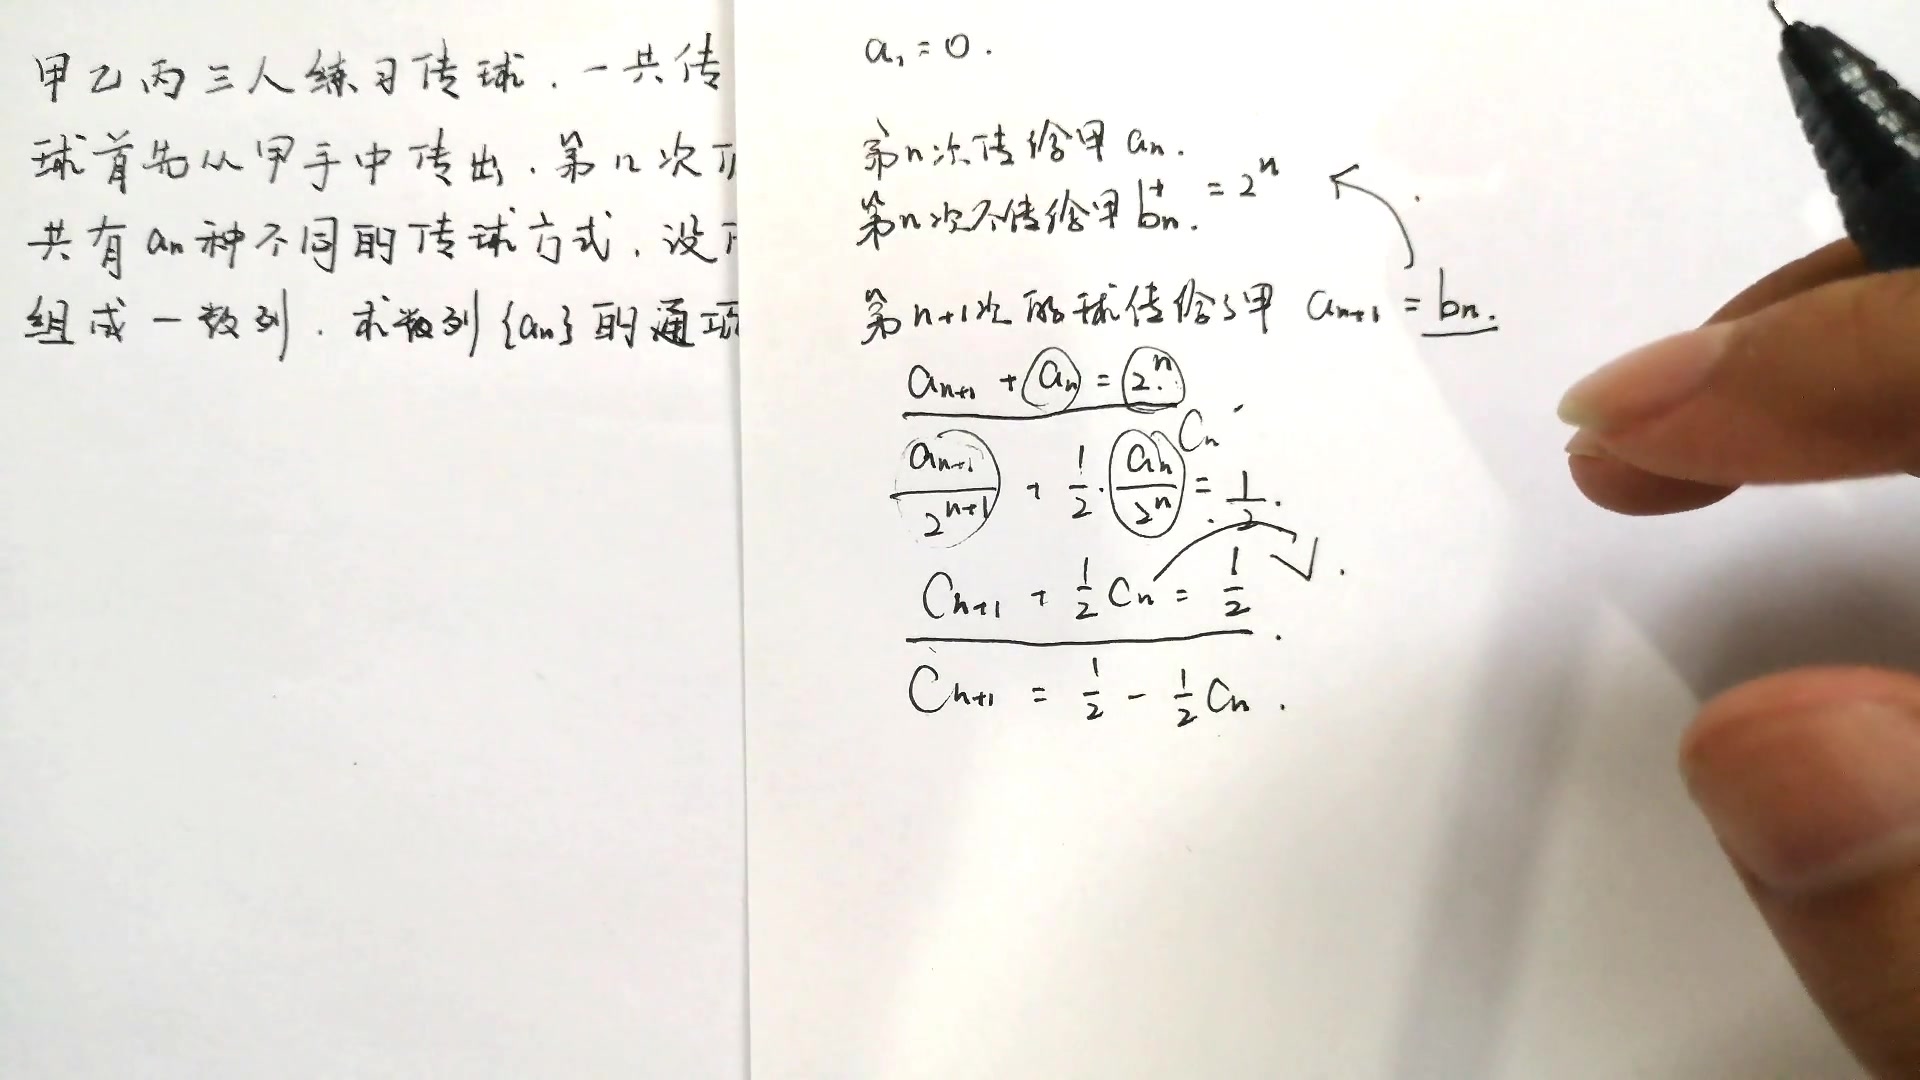 甲乙丙三人练习传球.一共传
球首先从甲手中传出.第n次
共有an种不同的传球方式.设
组成一数列.求数列{an}的通项
a₁=0.
第n次传给甲 an.
第n次不传给甲 bn.
+
=2ⁿ
第n+1次的球传给了甲 an+1 = bn.
an+1 + an = 2ⁿ
an+1/2ⁿ⁺¹ + 1/2 · an/2ⁿ = 1/2.
Cn
Cn+1 + 1/2 Cn = 1/2
Cn+1 = 1/2 - 1/2 Cn.